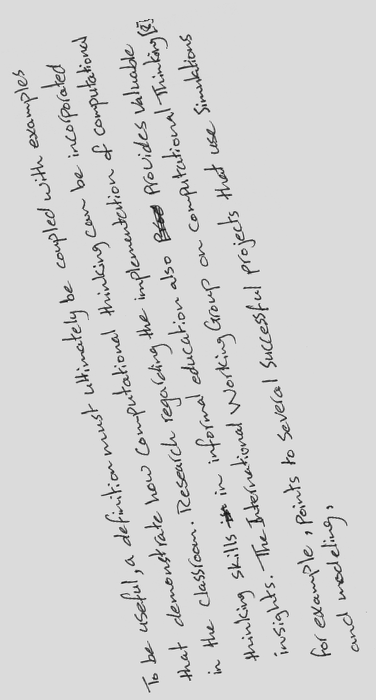 To be useful, a definition must ultimately be coupled with examples
that demonstrate how computational thinking can be incorporated
in the classroom. Research regarding the implementation of computational
thinking skills in informal education also Provides valuable
insights. The International Working Group on computational Thinking [2]
for example, points to several successful projects that use simulations
and modeling,